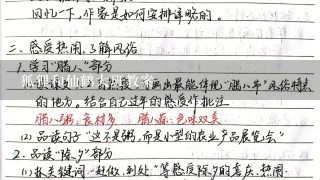 回忆一下，作家是如何安排详略的。
二、感受热闹，了解风俗
1. 学习“腊八”部分
狐狸和仙鹤大班教案
画出最能体现“腊八节”风俗特点
的地方。结合自己过年的感受作批注
腊八粥：食材多 腊八蒜：色味双美
(2) 品读句子“这不是粥，而是小型的农业产品展览会”
2. 品读“除夕”部分
(1) 抓关键词 “赶做、到处”等感受除夕的喜庆、热闹